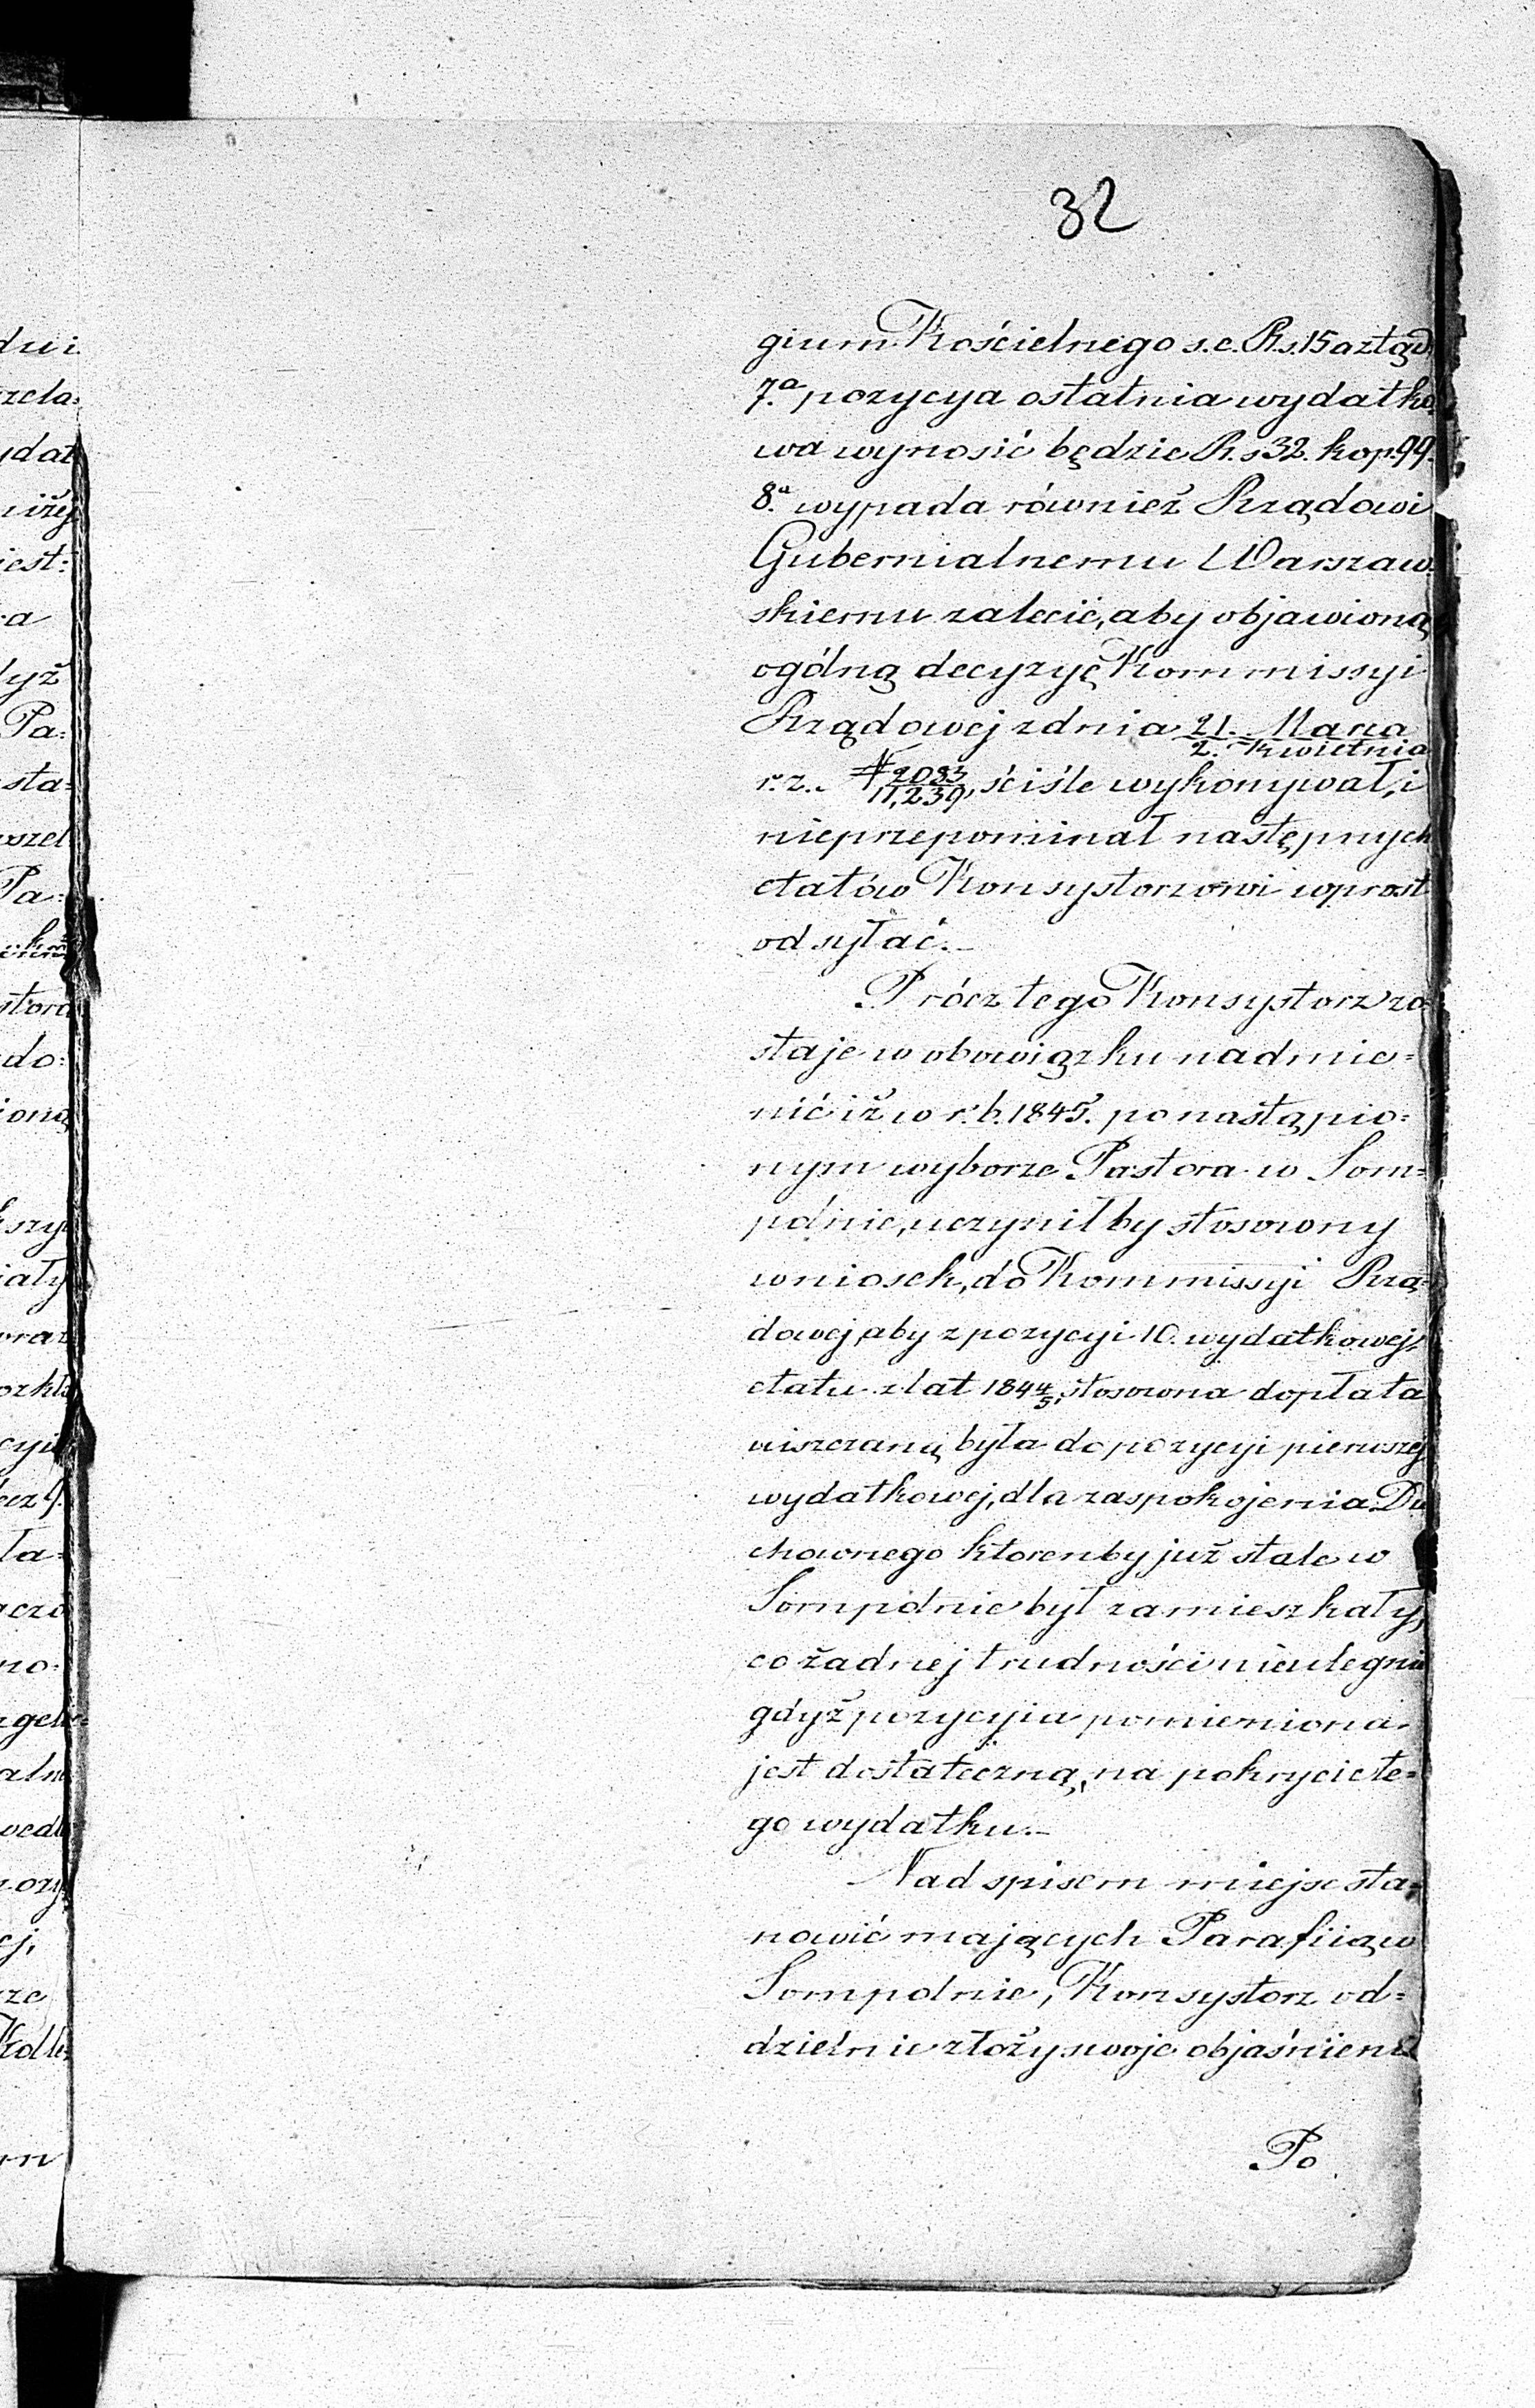 32
gium Kościelnego s. c. R.s. 15 aztąd
7.a pozycya ostatnia wydatko
wa wynosić będzie R.s 32. kop. 99.
8.a wypada również Rządowi
Gubernialnemu Warszaw
skiemu zalecić, aby objawioną
ogólną decyzyę Kommissyi
Rządowej z dnia 21. Marca / 2. Kwietnia
r. z. N 2083 / 11,239, ściśle wykonywał, i
nieprzepominał następnych
etatów Konsystorzowi wprost
odsyłać.–
Prócz tego Konsystorz zo=
staje w obowiązku nadmie=
nić iż w r. b. 1845. po nastąpio=
nym wyborze Pastora w Som=
pólnie, uczynił by stosowny
wniosek, do Kommissyi Rzą=
dowej, aby z pozycyi 10. wydatkowej,
etatu z lat 1844/5, stosowna dopłata
uiszczaną była do pozycyi pierwszej
wydatkowej, dla zaspokojenia Du
chownego ktorenby już stale w
Sompolnie był zamieszkały,
co żadnej trudności nieulegnie
gdyż pozycyia pomieniona
jest dostateczną, na pokrycie te=
go wydatku.–
Nad spisem miejsc sta=
nowić mających Parafiią w
Sompolnie, Konsystorz od=
dzielnie złoży swoje objaśnienie
Po